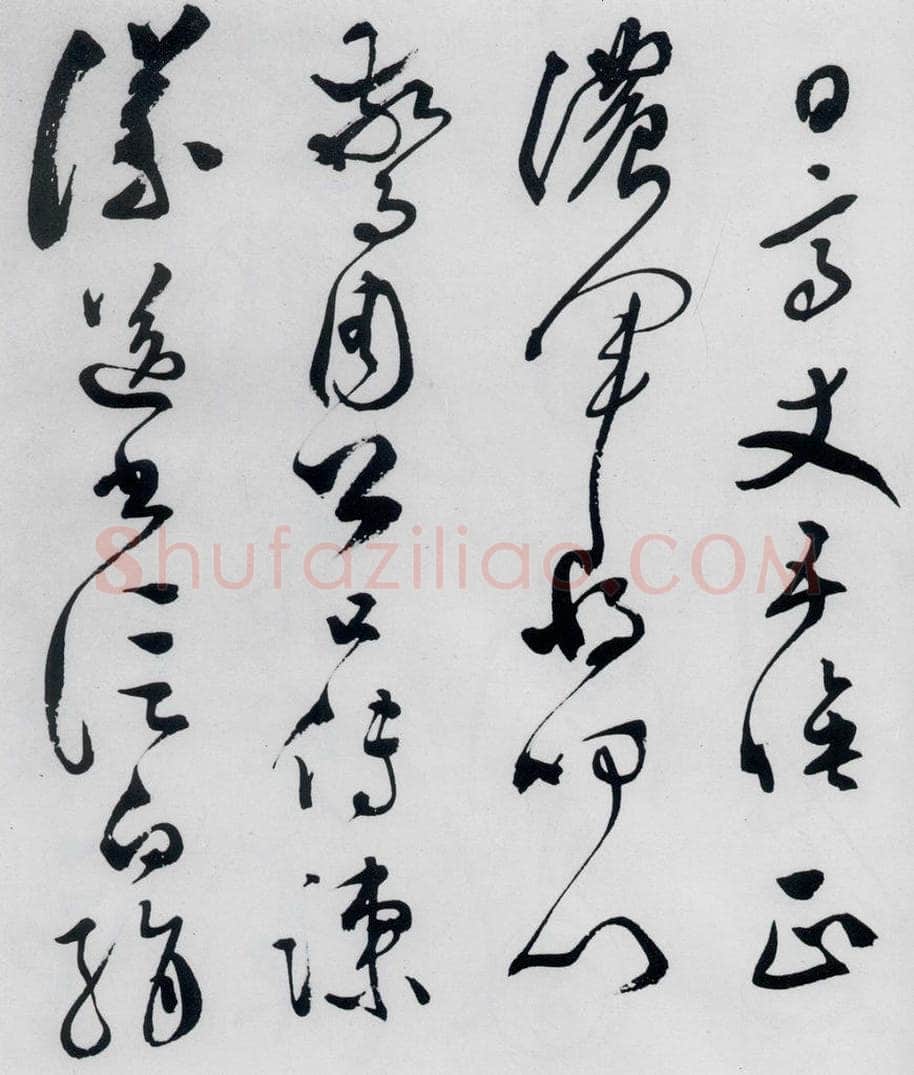 日高丈五睡正
濃軍將叩門
驚周公口傳諫
議送書信白絹
Shufaziliao.COM